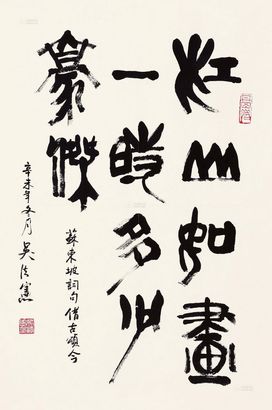 江山如畫
一時多少
豪傑
蘇東坡詞句借古頌今
辛未年冬月吳法憲